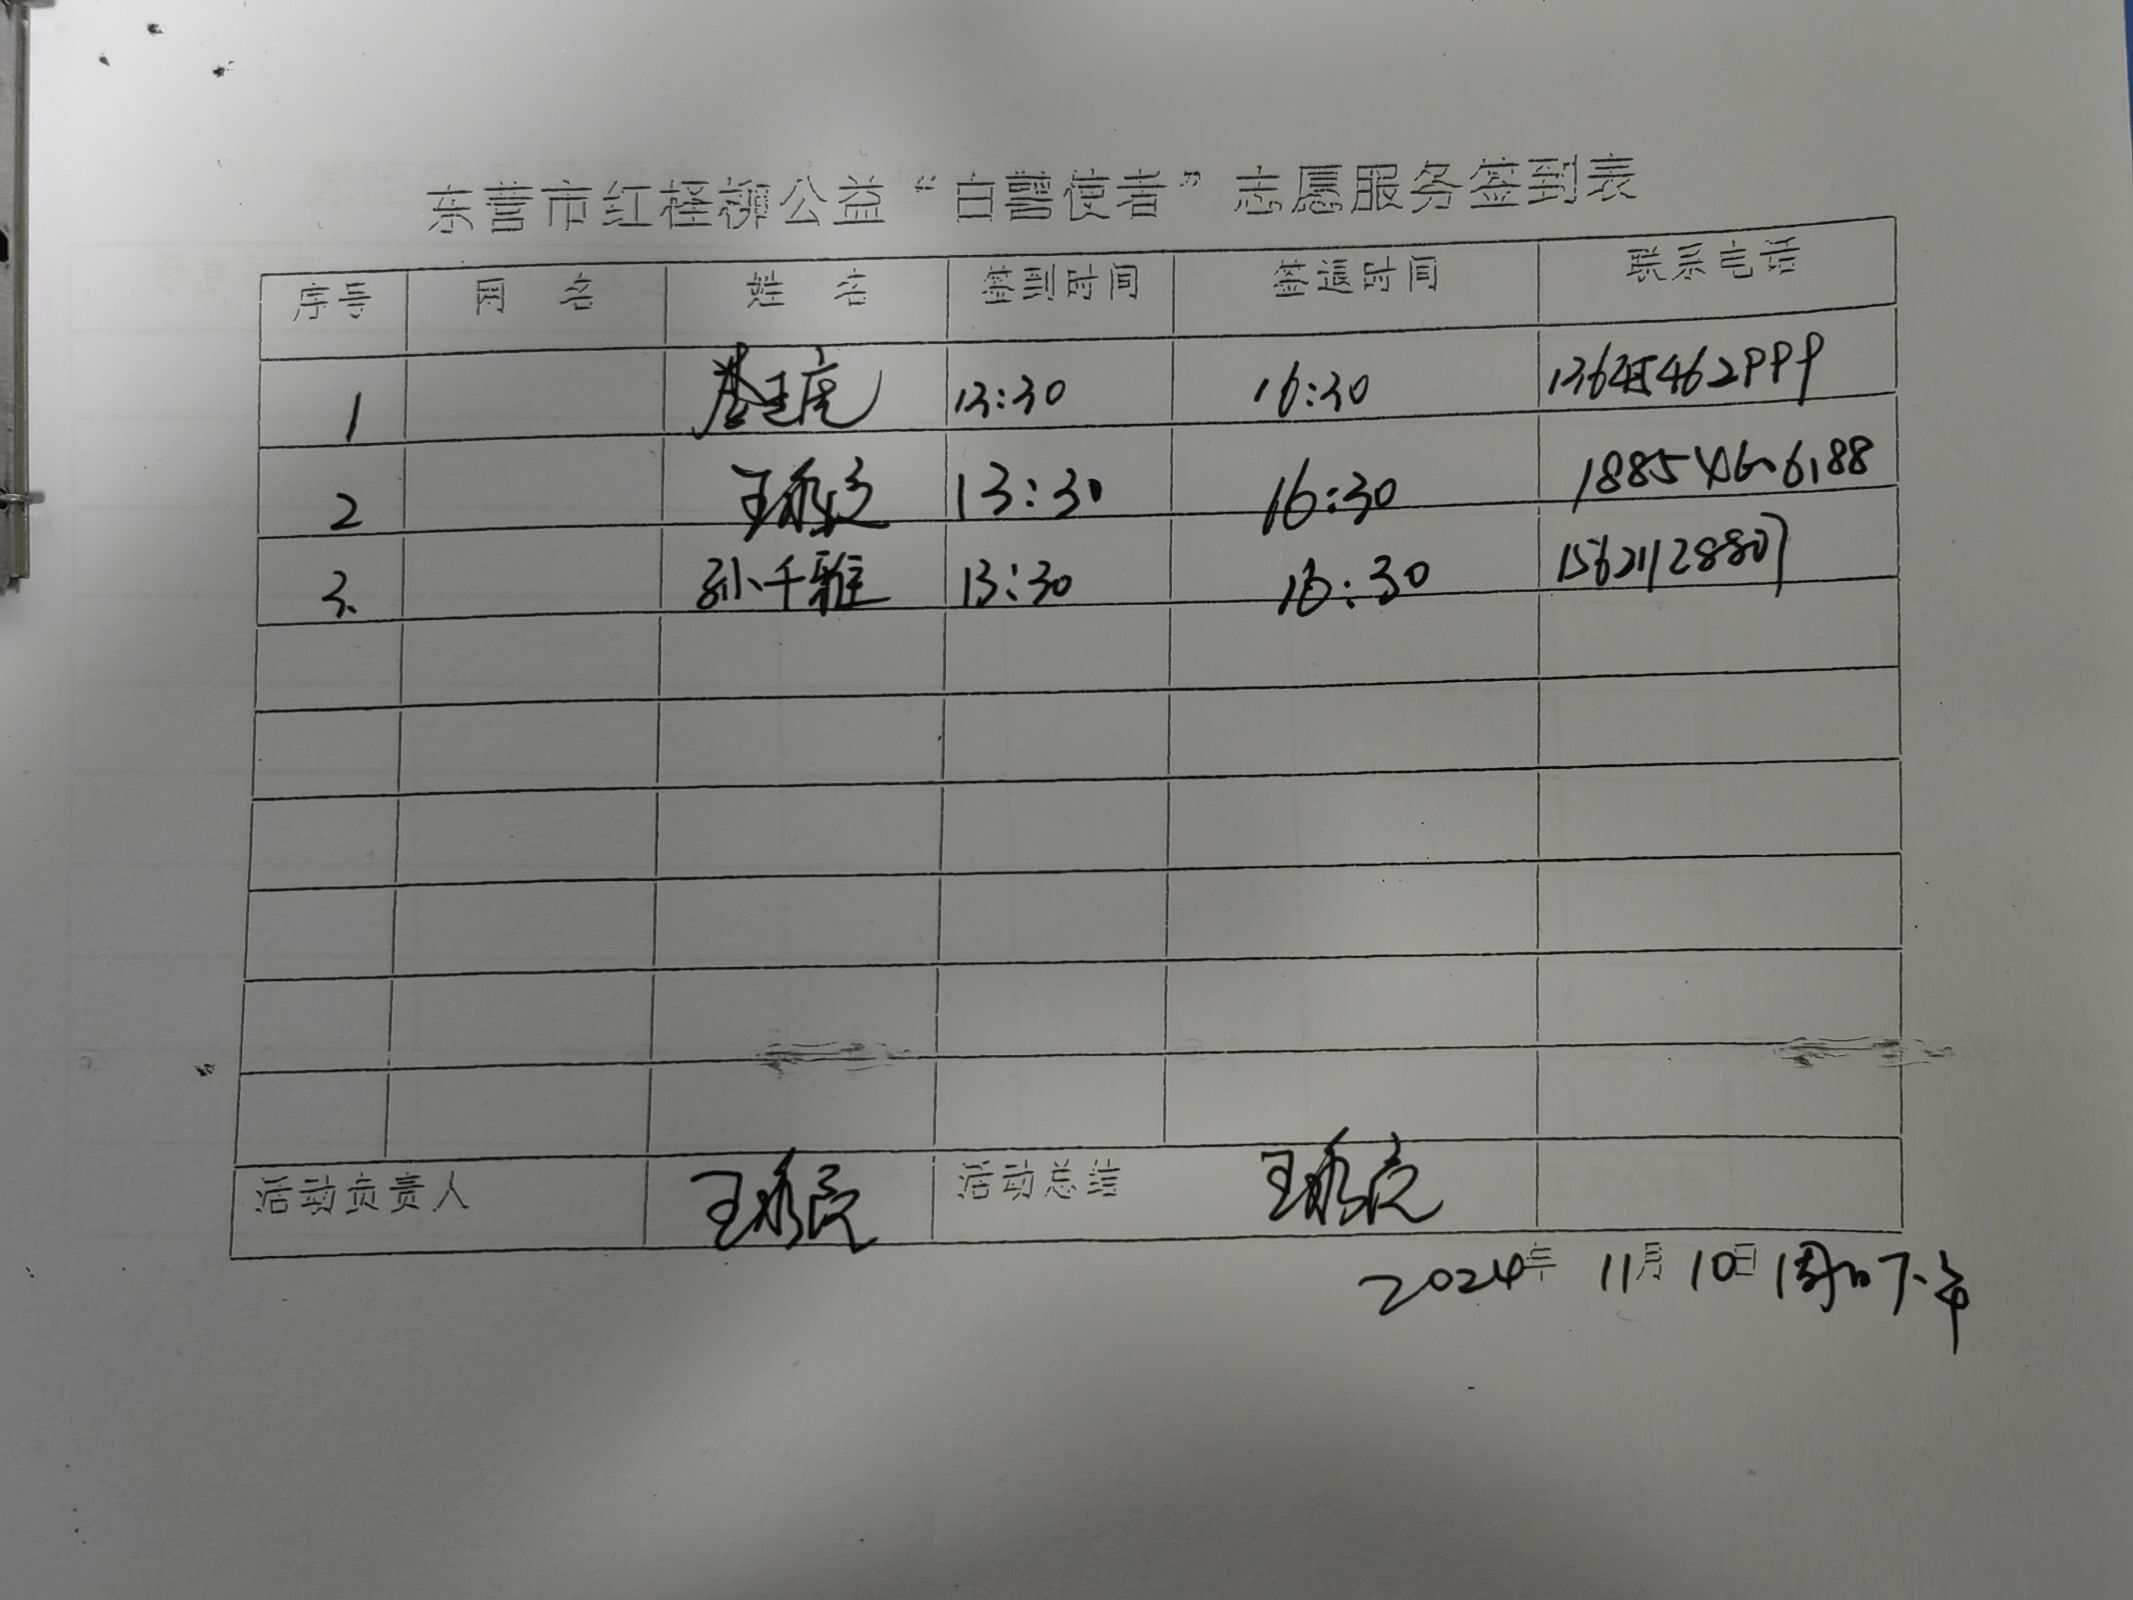 东营市红柽柳公益“白鹭使者”志愿服务签到表
序号 网 名 姓 名 签到时间 签退时间 联系电话
1 13:30 16:30
2 13:30 16:30 18854606188
3 孙千雅 13:30 16:30 15621128807
活动负责人 活动总结
2024年 11月 10日 周日下午